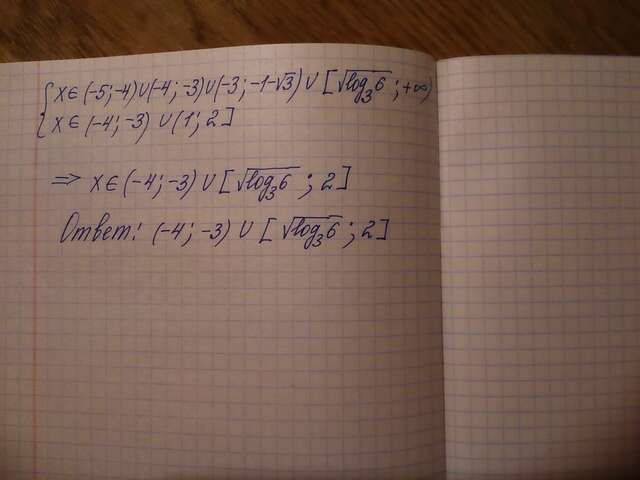 { x ∈ (-5; -4) ∪ (-4; -3) ∪ (-3; -1-√3) ∪ [√log₃6 ; +∞)
{ x ∈ (-4; -3) ∪ (1; 2]
⇒ x ∈ (-4; -3) ∪ [√log₃6 ; 2]
Ответ: (-4; -3) ∪ [√log₃6 ; 2]